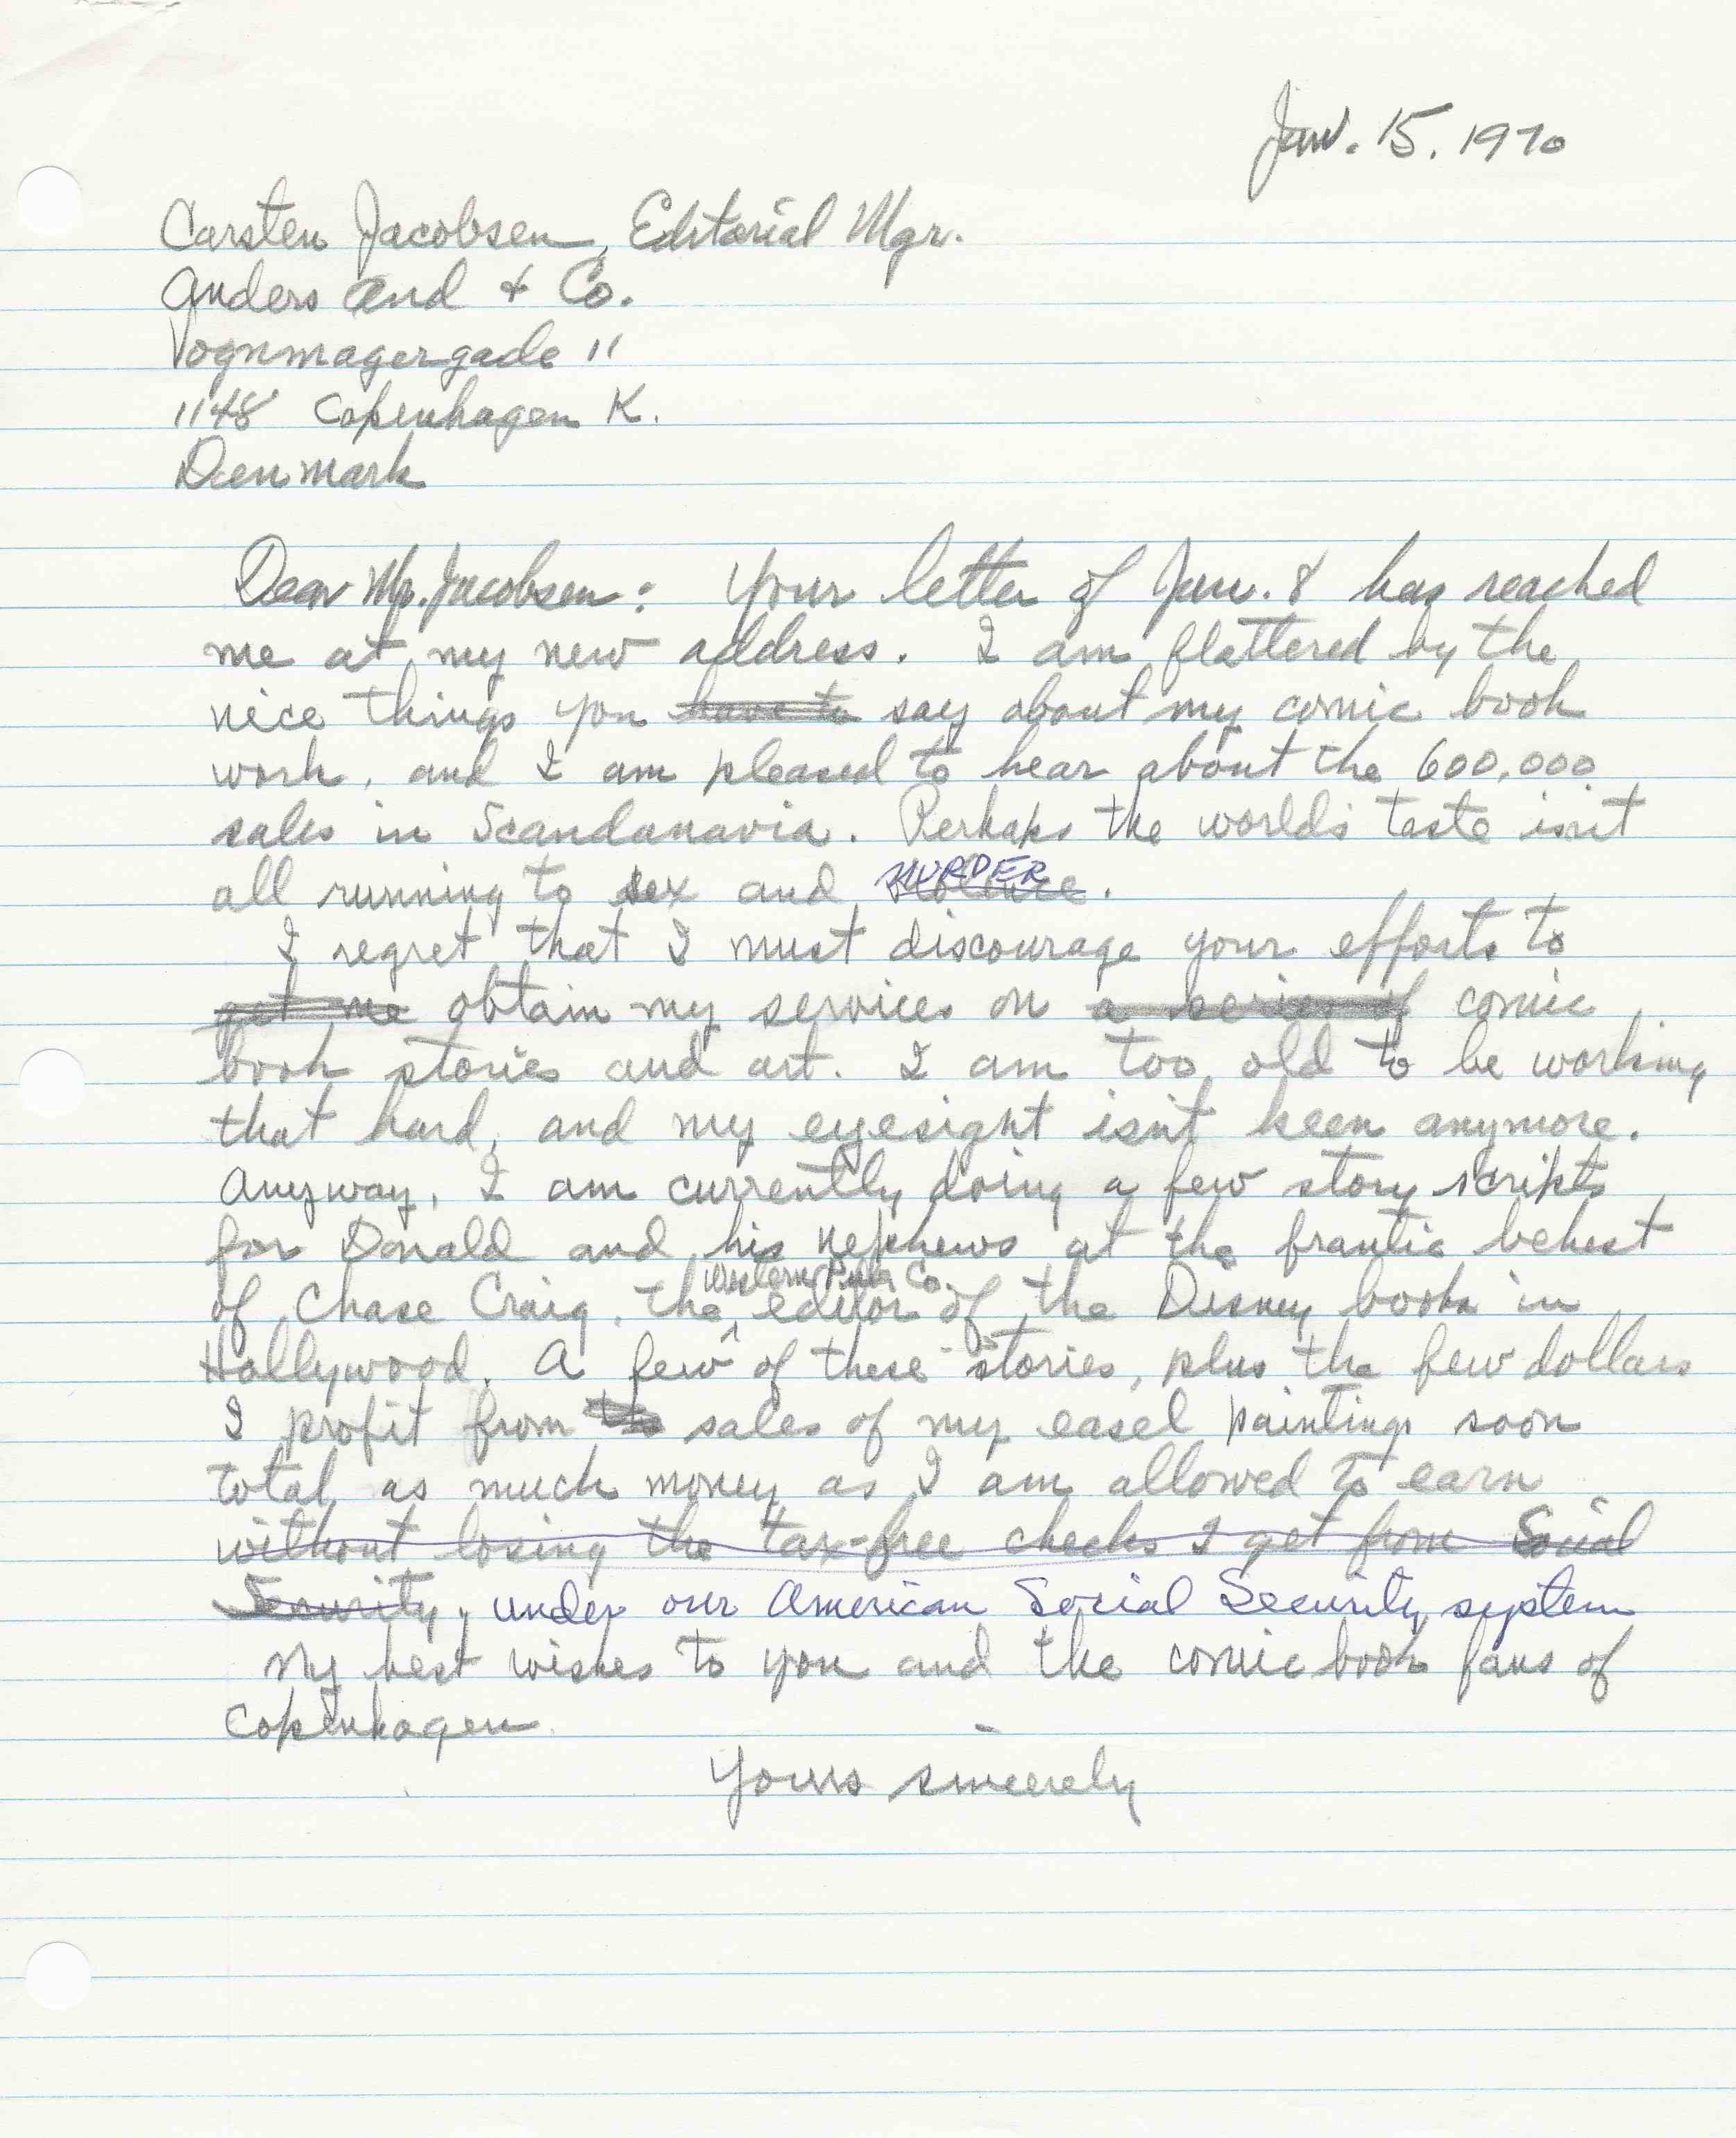 Jan. 15. 1970
Carsten Jacobsen, Editorial Mgr.
Anders And + Co.
Vognmagergade 11
1148 Copenhagen K.
Denmark
Dear Mr. Jacobsen: Your letter of Jan. 8 has reached
me at my new address. I am flattered by the
nice things you have to say about my comic book
work, and I am pleased to hear about the 600,000
sales in Scandanavia. Perhaps the world's taste isn't
MURDER
all running to sex and violence.
I regret that I must discourage your efforts to
get me obtain my services on a series of comic
book stories and art. I am too old to be working
that hard, and my eyesight isn't keen anymore.
Anyway, I am currently doing a few story scripts
for Donald and his nephews at the frantic behest
Western Pub. Co.
of Chase Craig, the ^ editor of the Disney books in
Hollywood. A few of these stories, plus the few dollars
I profit from the sales of my easel paintings soon
total as much money as I am allowed to earn
without losing the tax-free checks I get from Social
Security, under our American Social Security system
My best wishes to you and the comic book fans of
Copenhagen.
Yours sincerely